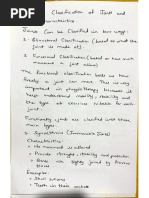 Classification of Joint and
Characteristics
Joints Can be Classified in two ways:
1. Structural Classification (based on what the
joint is made of)
2. Functional Classification (based on how much
movement a joint allows)
The functional classification tells us how
freely a joint can move. This is very
important in physiotherapy because it
helps understand mobility, stability and
the type of exercise suitable for each
joint.
Functionally joints are classified into three
main types:
1. Synarthrosis (Immovable Joints)
Characteristics:
No movement is allowed
Provide strength, stability and protection
Bones are tightly joined by fibrous
tissue
Examples:
Skull sutures
Teeth in their sockets